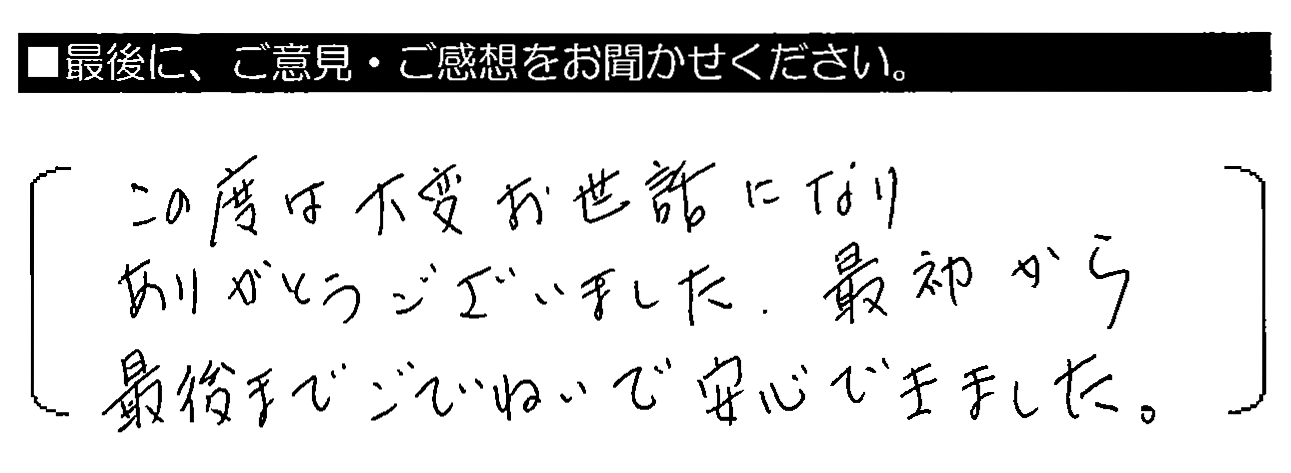 ■最後に、ご意見・ご感想をお聞かせください。
この度は大変お世話になり
ありがとうございました. 最初から
最後までごでねいで安心できました。